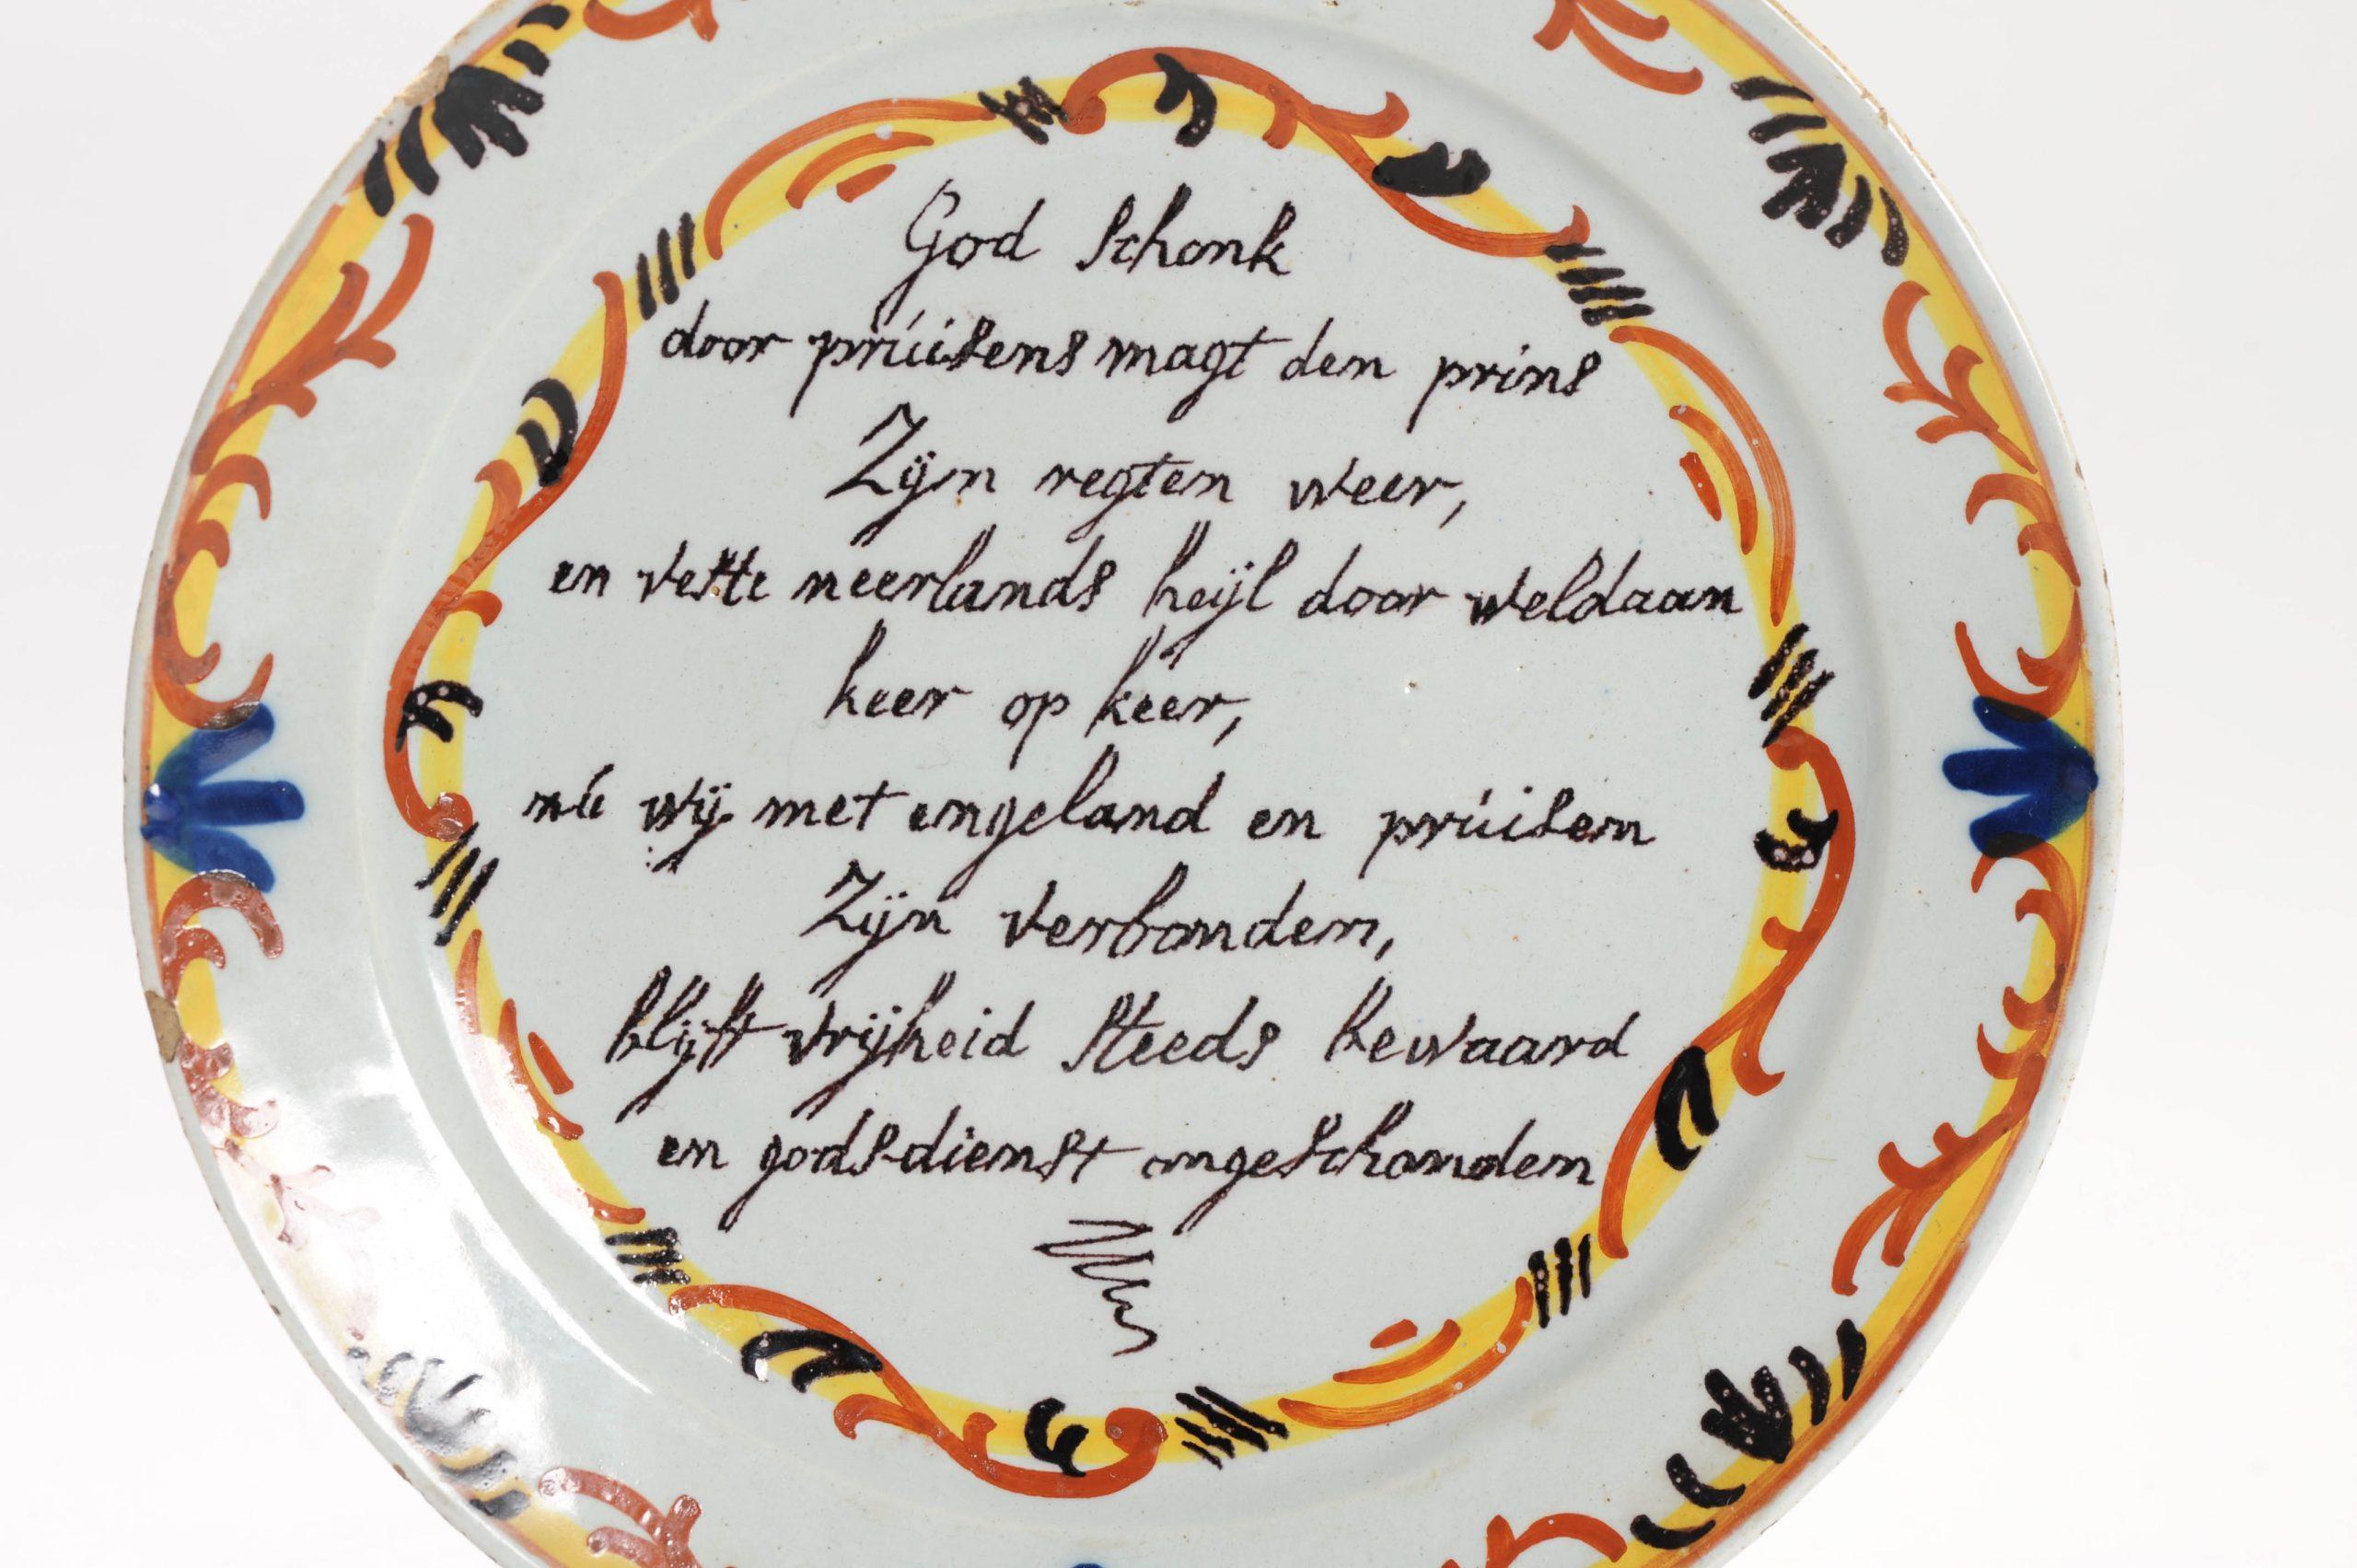 God schonk
door prúisens magt den prins
Zijn regten weer,
en veste neerlands heijl door weldaan
keer op keer,
nú wij met engeland en prúisen
Zijn verbonden,
blijft vrijheid steeds bewaard
en gods-dienst ongeschonden